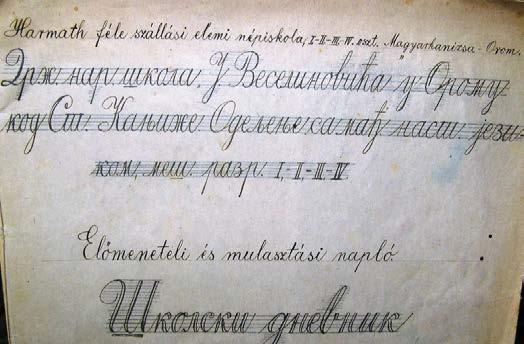 Harmath féle szállási elemi népiskola, I-II-III-IV. oszt. Magyarkanizsa-Orom.
Држ нар школа „Ј Веселиновића" у Орому
код Ст. Кањиже Одељење са мађ наст јези-
ком, меш. разр. I,-I,-II,-III-IV
Előmeneteli és mulasztási napló.
Школски дневник